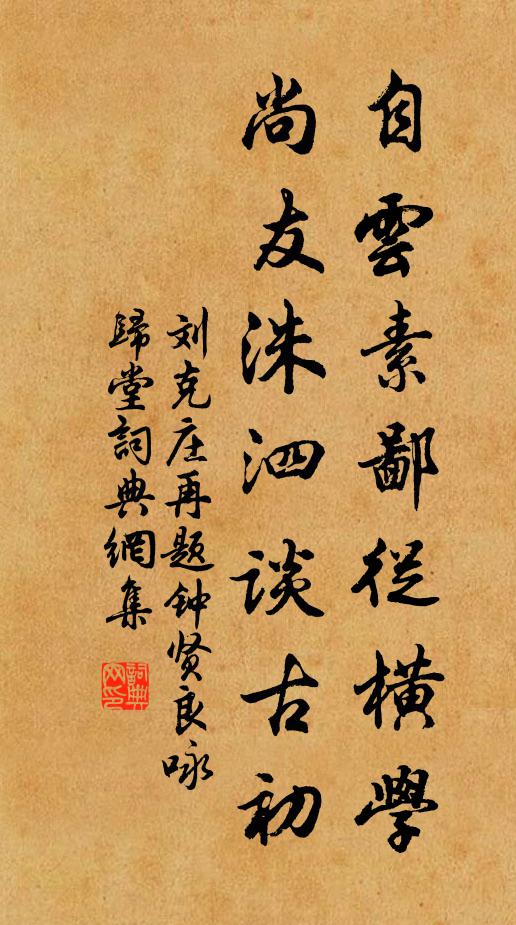 自雲素鄙從橫學
尚友洙泗談古初
刘克庄再题钟贤良咏
歸堂詞典網集
詞典
网印